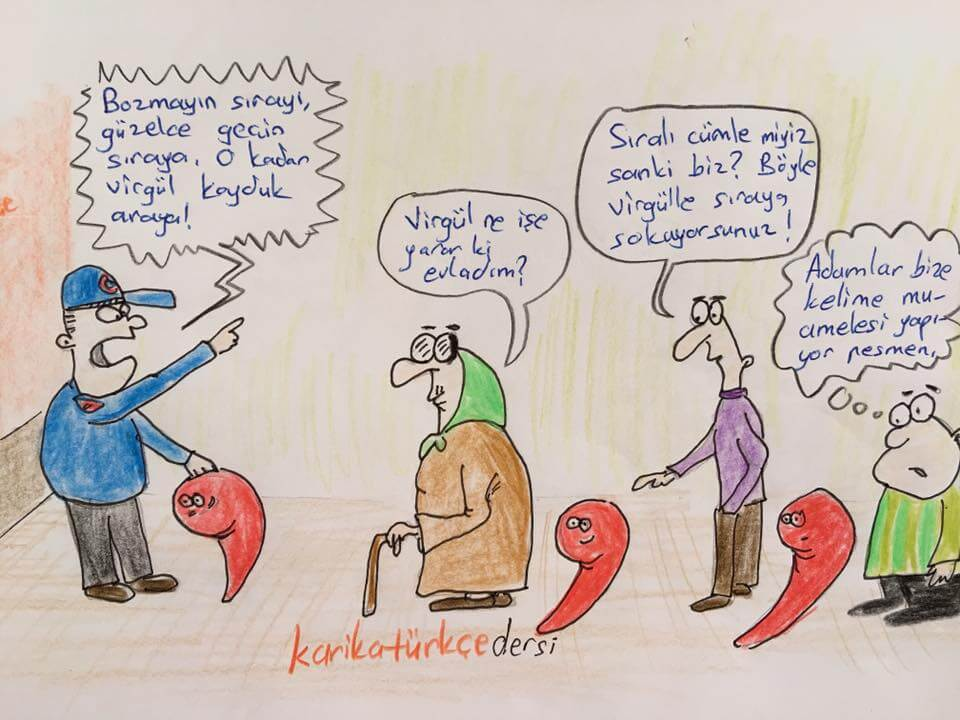 Bozmayın sırayı,
güzelce geçin
sıraya. O kadar
virgül koyduk
araya!
Virgül ne işe
yarar ki
evladım?
Sıralı cümle miyiz
sanki biz? Böyle
virgülle sıraya
sokuyorsunuz!
Adamlar bize
kelime mu-
amelesi yapı-
yor resmen.
karikatürkçe dersi